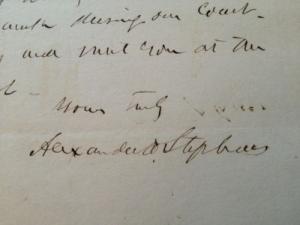 during our Court
and meet you at the
Yours truly
Alexander H Stephens